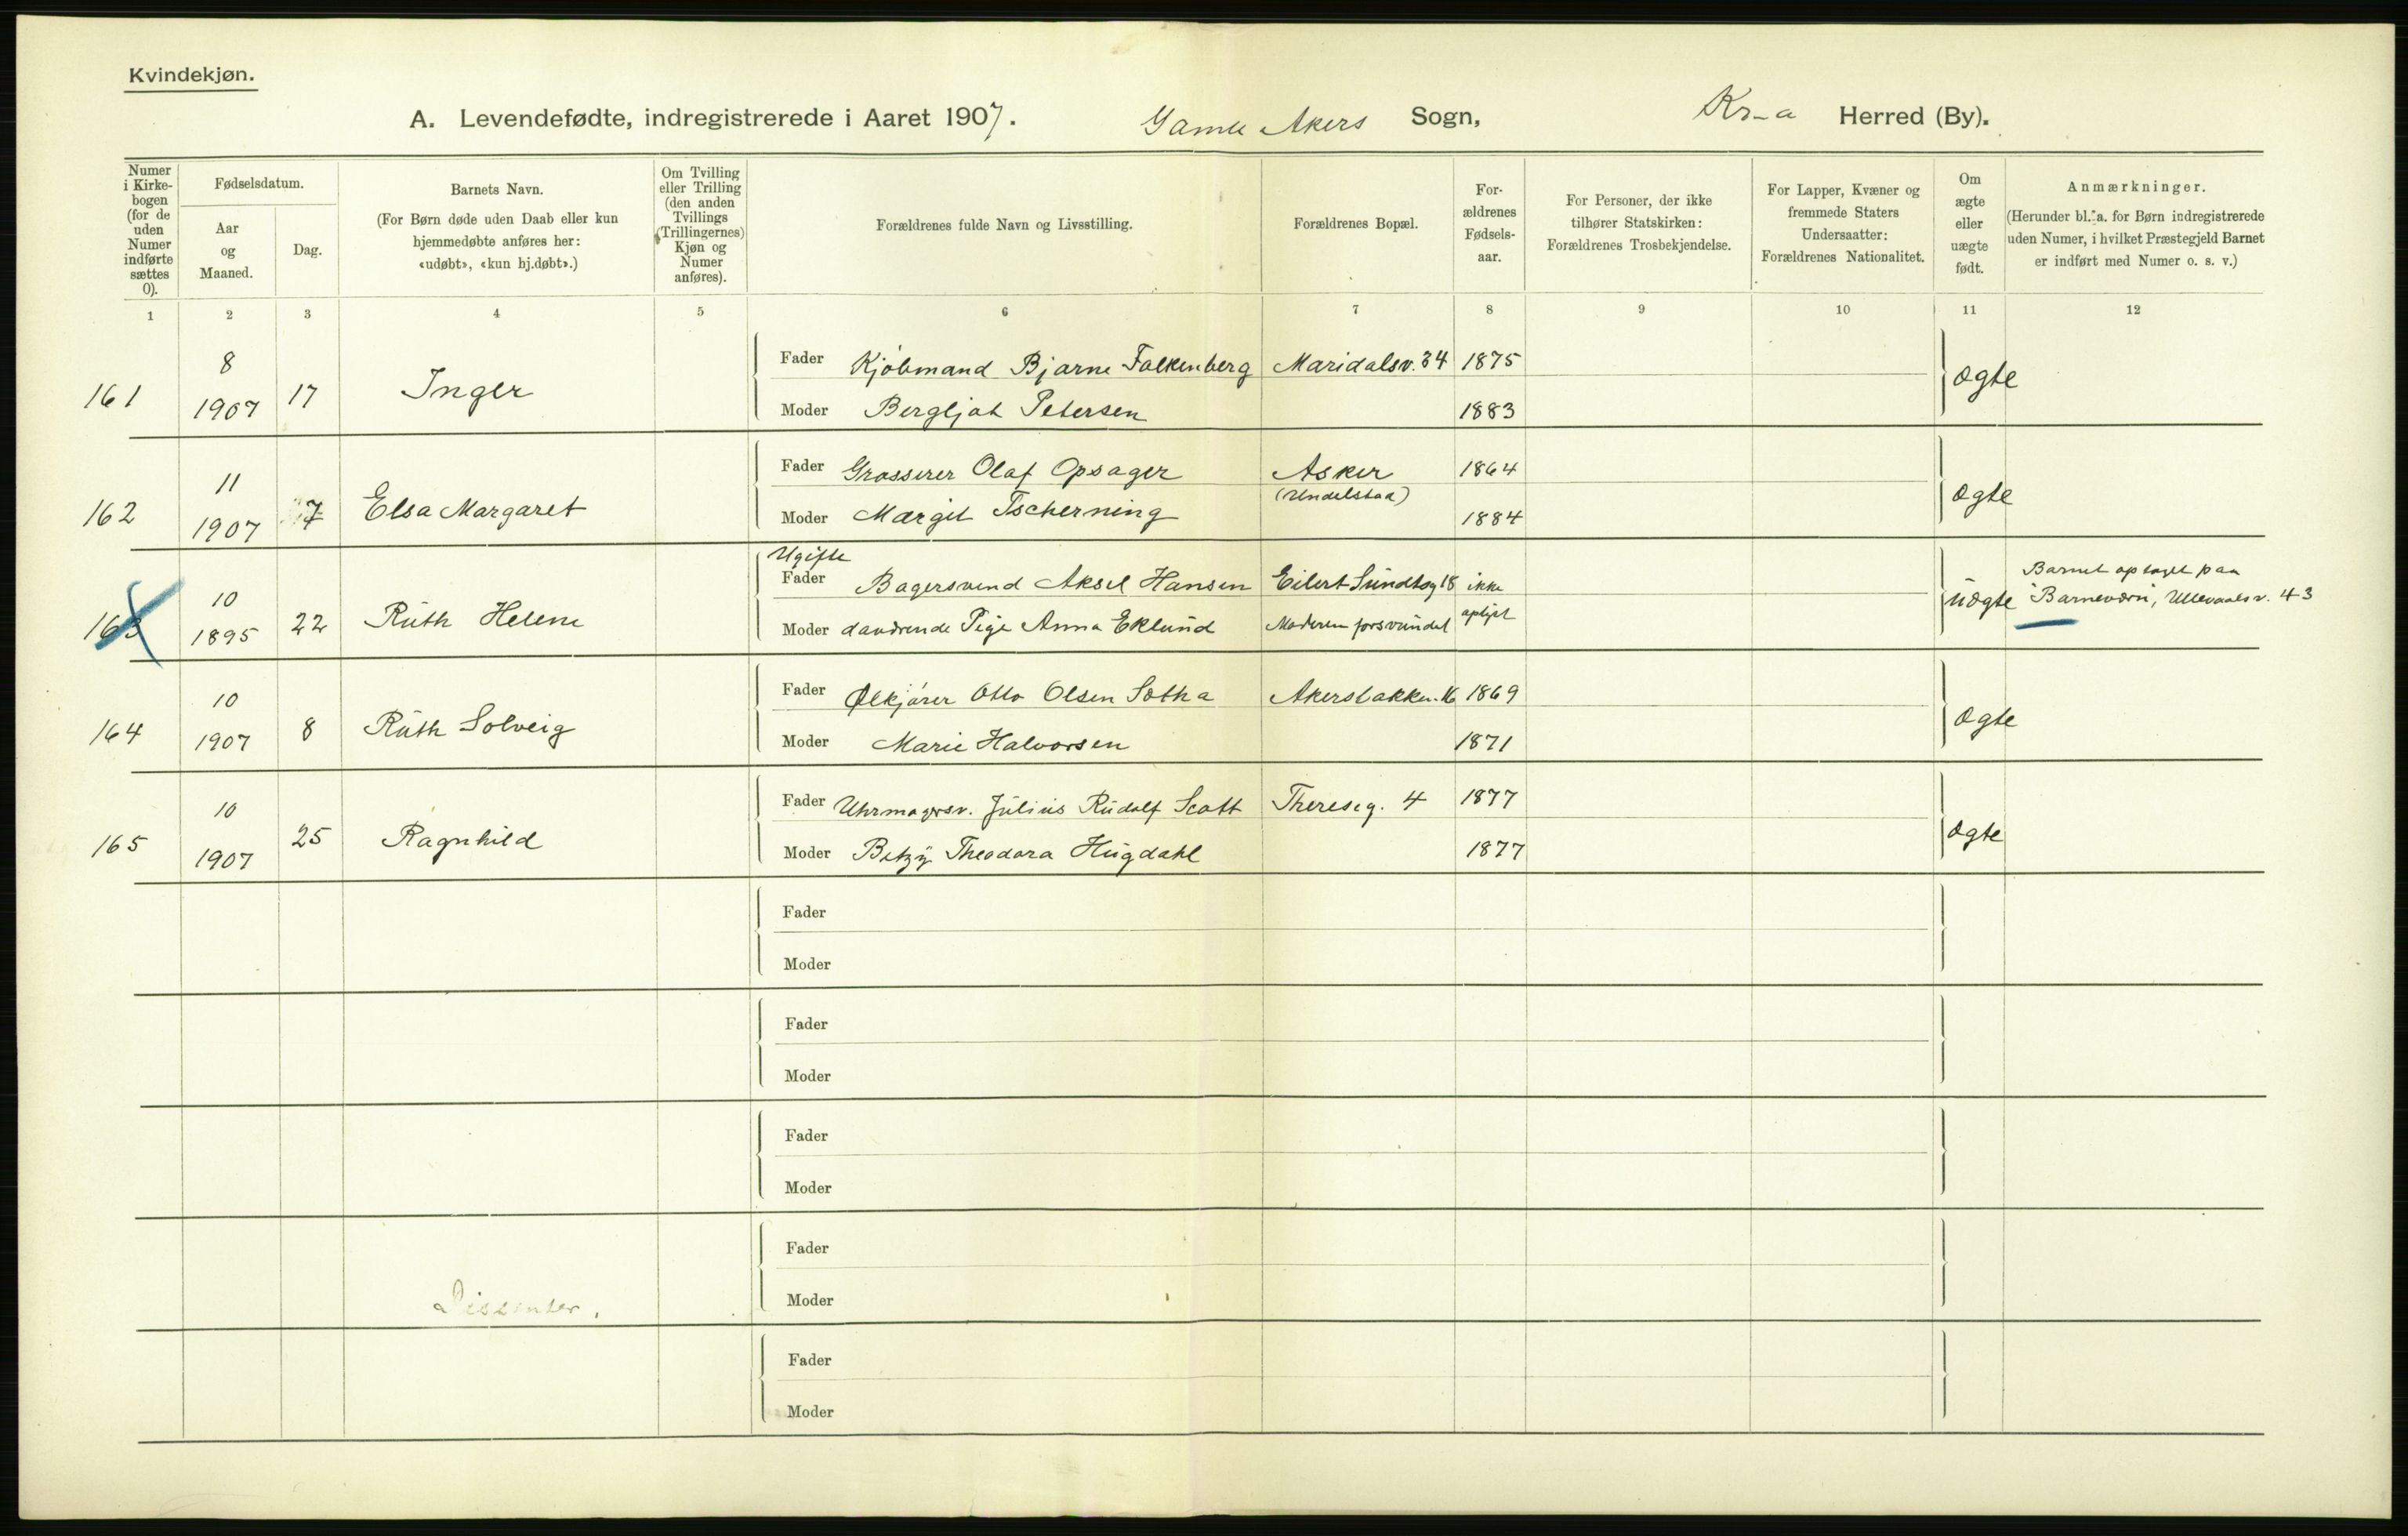 Kvindekjøn.
A. Levendefødte, indregistrerede i Aaret 1907. Gamle Akers Sogn, Kr-a Herred (By).
Numer
i Kirke-
bogen
(for de
uden
Numer
indførte
sættes
0).
Fødselsdatum.
Aar
og
Maaned.
Dag.
Barnets Navn.
(For Børn døde uden Daab eller kun
hjemmedøbte anføres her:
«udøbt», «kun hj.døbt».)
Om Tvilling
eller Trilling
(den anden
Tvillings
(Trillingernes)
Kjøn og
Numer
anføres).
Forældrenes fulde Navn og Livsstilling.
Forældrenes Bopæl.
For-
ældrenes
Fødsels-
aar.
For Personer, der ikke
tilhører Statskirken:
Forældrenes Trosbekjendelse.
For Lapper, Kvæner og
fremmede Staters
Undersaatter:
Forældrenes Nationalitet.
Om
ægte
eller
uægte
født.
Anmærkninger.
(Herunder bl. a. for Børn indregistrerede
uden Numer, i hvilket Præstegjeld Barnet
er indført med Numer o. s. v.)
1 2 3 4 5 6 7 8 9 10 11 12
8
Fader Kjøbmand Bjarne Falkenberg Maridalsv. 34 1875
161 1907 17 Inger ægte
Moder Bergljot Petersen 1883
11
Fader Grosserer Olaf Opsager Asker 1864
(Undelstad)
162 1907 7 Elsa Margaret ægte
Moder Margit Tscherning 1884
Ugifte
10
Fader Bagersvend Aksel Hansen Eilert Sundtsg 18 ikke
Barnet optaget paa
163 1895 22 Ruth Helene uægte Barneværn, Ullevaalsv. 43
Moder daværende Pige Anna Eklund Moderen forsvundet oplyst
10
Fader Ølkjører Otto Olsen Sætha Akersbakken 16 1869
164 1907 8 Ruth Solveig ægte
Moder Marie Halvorsen 1871
10
Fader Uhrmagersv. Julius Rudolf Scott Thereseg. 4 1877
165 1907 25 Ragnhild ægte
Moder Betzy Theodora Hugdahl 1877
Fader
Moder
Fader
Moder
Fader
Moder
Fader
Dissenter.
Moder
Fader
Moder